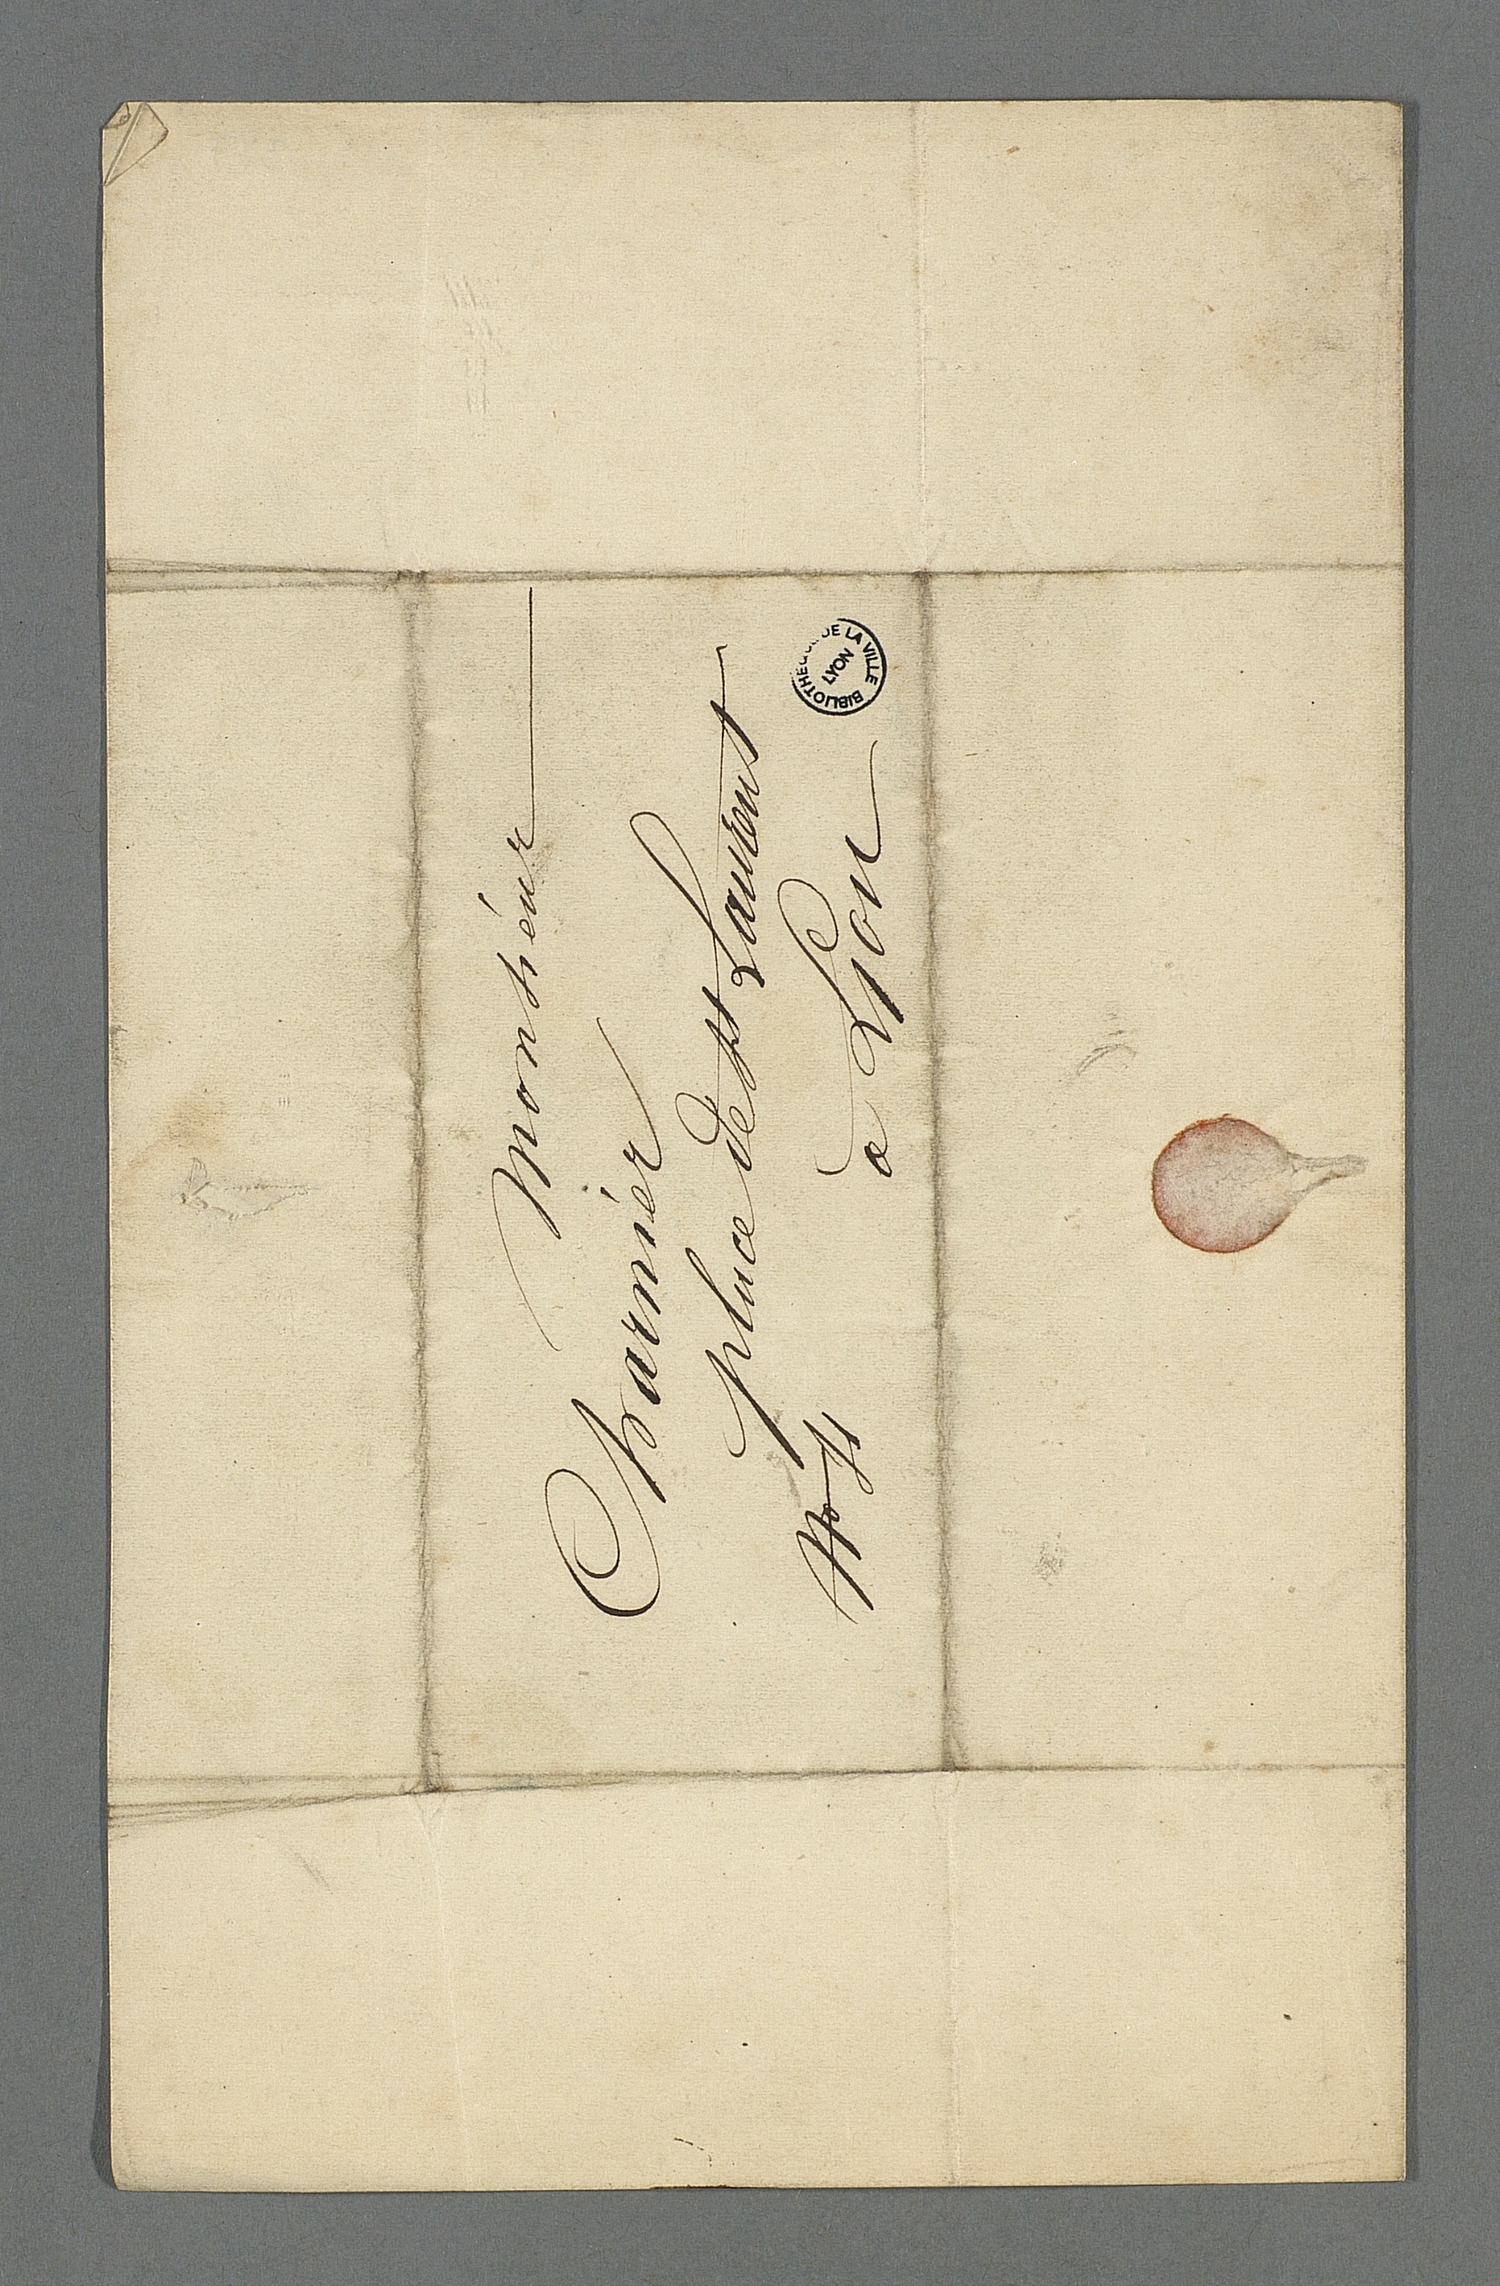 Monsiéur
Charniér
place de st Laurent
No 4
a Lyon
BIBLIOTHEQUE DE LA VILLE
LYON